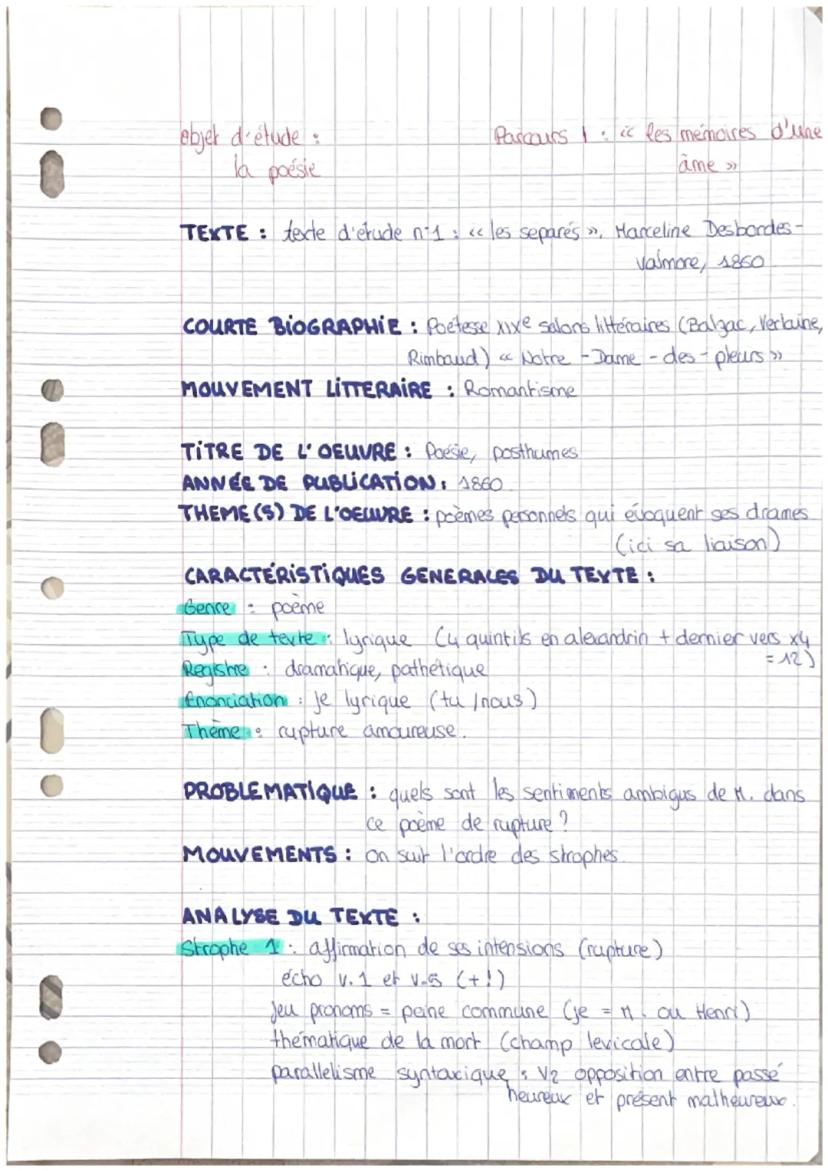 objet d'étude : Parcours 1 : « les mémoires d'une
la poésie âme »
TEXTE : texte d'étude n°1 : « les separés », Marceline Desbordes-
Valmore, 1860
COURTE BIOGRAPHIE : Poétesse XIXe salons littéraires (Balzac, Verlaine,
Rimbaud) « Notre - Dame - des - pleurs »
MOUVEMENT LITTERAIRE : Romantisme
TITRE DE L'OEUVRE : Poésie, posthumes
ANNÉE DE PUBLICATION : 1860
THEME(S) DE L'OEUVRE : poèmes personnels qui évoquent ses drames
(ici sa liaison)
CARACTÉRISTIQUES GENERALES DU TEXTE :
Genre : poème
Type de texte : lyrique (4 quintils en alexandrin + dernier vers x4
= 12)
Registre : dramatique, pathétique
Enonciation : je lyrique (tu / nous)
Thème : rupture amoureuse.
PROBLEMATIQUE : quels sont les sentiments ambigus de M. dans
ce poème de rupture ?
MOUVEMENTS : on suit l'ordre des strophes.
ANALYSE DU TEXTE :
Strophe 1 : affirmation de ses intensions (rupture)
écho v.1 et v.5 (+!)
jeu pronoms = peine commune (je = M. ou Henri)
thématique de la mort (champ lexicale)
parallelisme syntaxique : V2 opposition entre passé
heureux et présent malheureux.